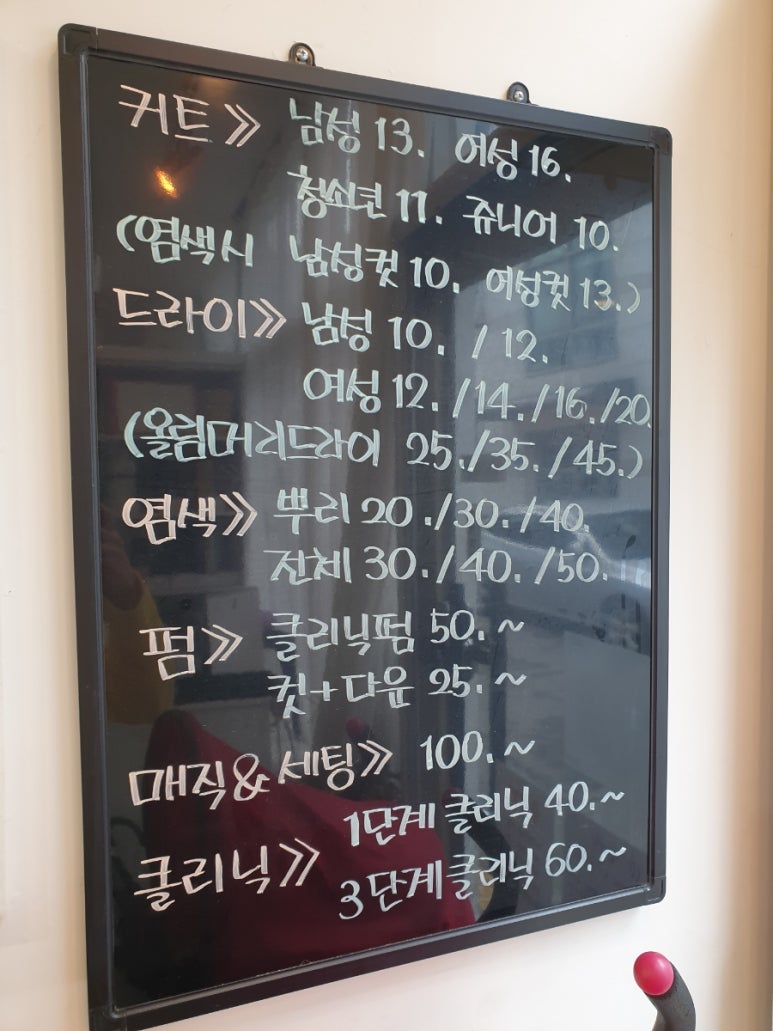 커트》 남성 13. 여성 16.
청소년 11. 쥬니어 10.
(염색시 남성컷 10. 여성컷 13.)
드라이》 남성 10. / 12.
여성 12. /14. /16. /20.
(올림머리드라이 25./35. /45.)
염색》 뿌리 20 ./30. /40.
전체 30. /40. /50.
펌》 클리닉펌 50. ~
컷+다운 25. ~
매직&세팅》 100. ~
1단계 클리닉 40. ~
클리닉》
3단계 클리닉 60. ~